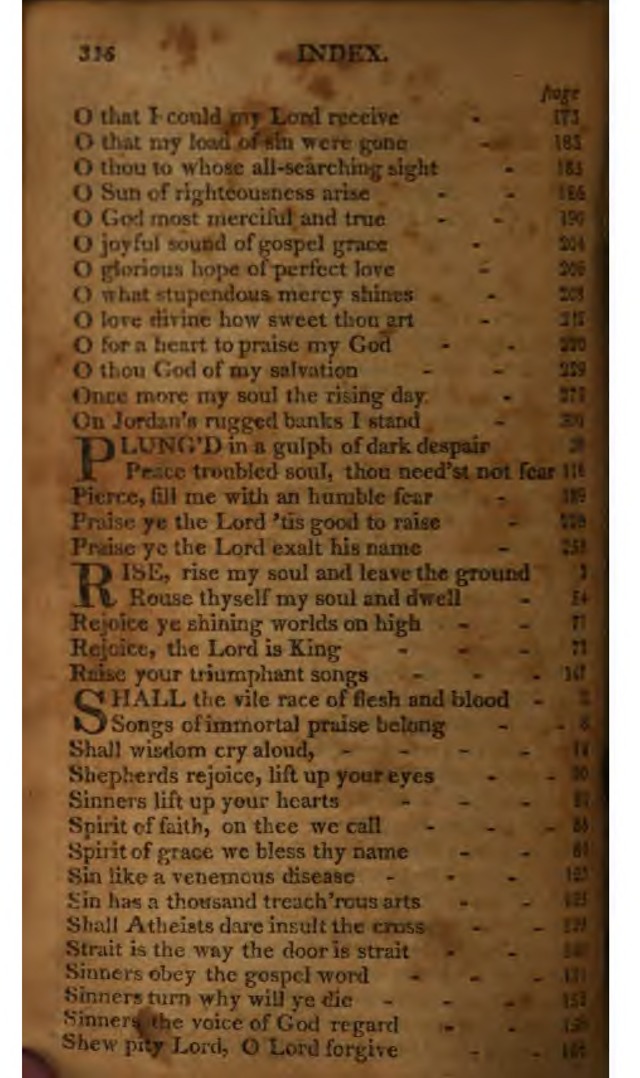 336 INDEX.
page
O that I could my Lord receive - 173
O that my load of sin were gone - 183
O thou to whose all-searching sight - 185
O Sun of righteousness arise - - 186
O God most merciful and true - - 190
O joyful sound of gospel grace - 204
O glorious hope of perfect love - 206
O what stupendous mercy shines - 208
O love divine how sweet thou art -
O for a heart to praise my God - - 220
O thou God of my salvation - - 229
Once more my soul the rising day. -
On Jordan's rugged banks I stand - 300
PLUNG'D in a gulph of dark despair
Peace troubled soul, thou need'st not fear 116
Pierce, fill me with an humble fear - 189
Praise ye the Lord 'tis good to raise -
Praise ye the Lord exalt his name -
RISE, rise my soul and leave the ground
Rouse thyself my soul and dwell -
Rejoice ye shining worlds on high - - 71
Rejoice, the Lord is King - - - 73
Raise your triumphant songs - - - 147
SHALL the vile race of flesh and blood -
Songs of immortal praise belong - -
Shall wisdom cry aloud, - - - -
Shepherds rejoice, lift up your eyes - -
Sinners lift up your hearts - - -
Spirit of faith, on thee we call - - -
Spirit of grace we bless thy name - -
Sin like a venemous disease - - -
Sin has a thousand treach'rous arts - -
Shall Atheists dare insult the cross -
Strait is the way the door is strait - -
Sinners obey the gospel word - - -
Sinners turn why will ye die - - -
Sinners the voice of God regard - -
Shew pity Lord, O Lord forgive - -